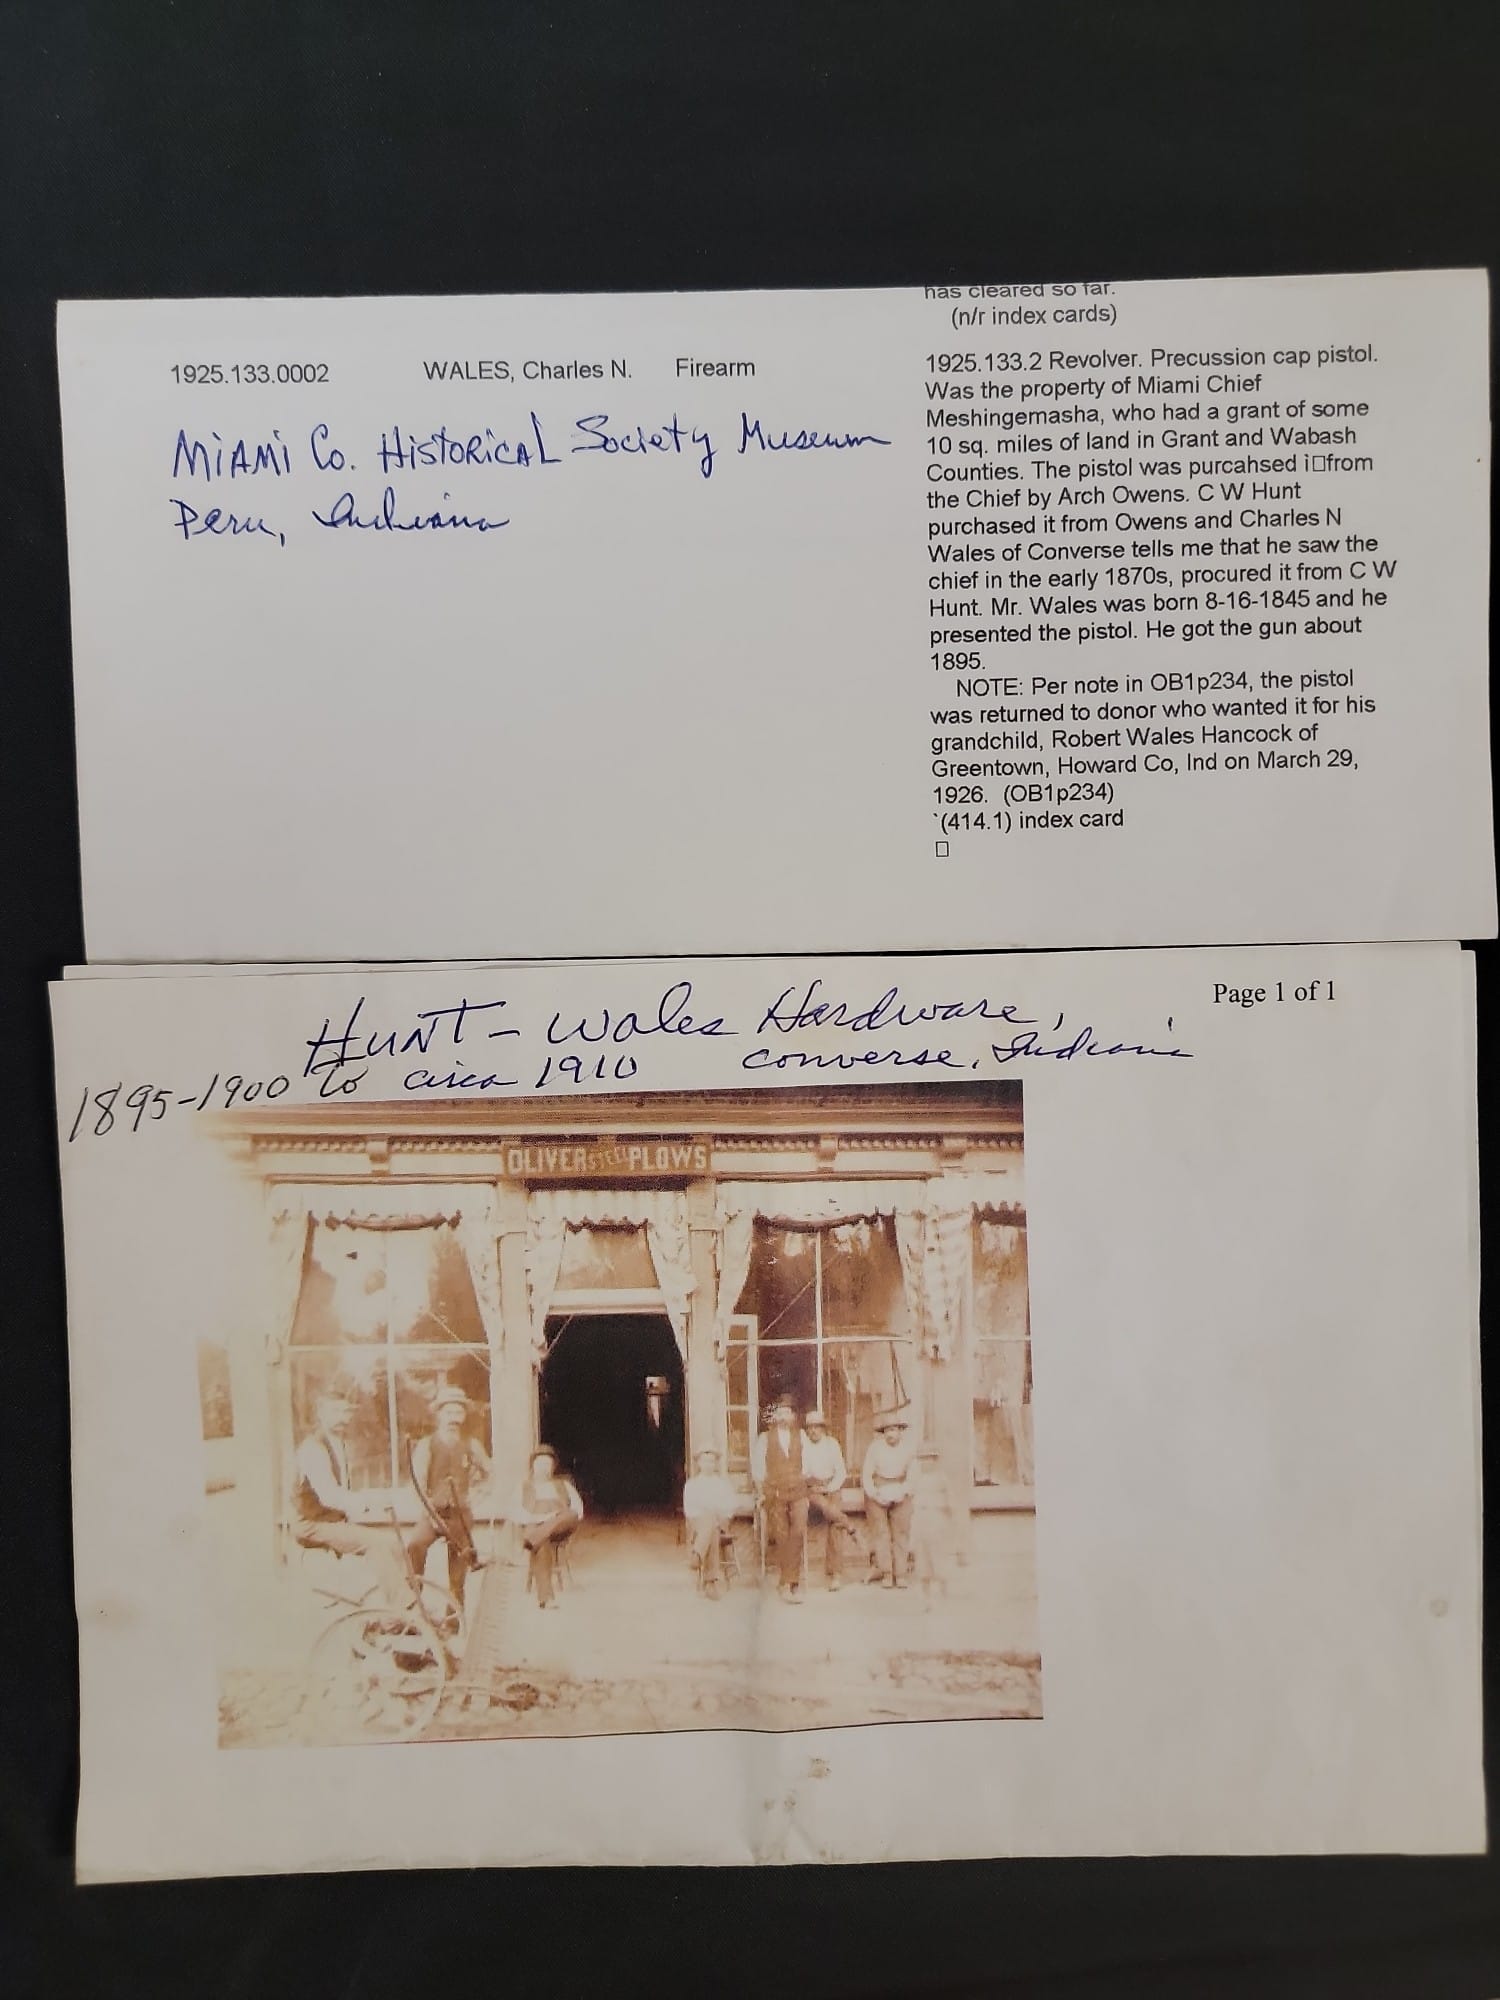 has cleared so far.
(n/r index cards)
1925.133.0002 WALES, Charles N. Firearm
Miami Co. Historical Society Museum
Peru, Indiana
1925.133.2 Revolver. Precussion cap pistol.
Was the property of Miami Chief
Meshingemasha, who had a grant of some
10 sq. miles of land in Grant and Wabash
Counties. The pistol was purcahsed ì□from
the Chief by Arch Owens. C W Hunt
purchased it from Owens and Charles N
Wales of Converse tells me that he saw the
chief in the early 1870s, procured it from C W
Hunt. Mr. Wales was born 8-16-1845 and he
presented the pistol. He got the gun about
1895.
NOTE: Per note in OB1p234, the pistol
was returned to donor who wanted it for his
grandchild, Robert Wales Hancock of
Greentown, Howard Co, Ind on March 29,
1926. (OB1p234)
`(414.1) index card
□
Page 1 of 1
Hunt - Wales Hardware,
Converse, Indiana
1895-1900 to circa 1910
OLIVER STEEL PLOWS